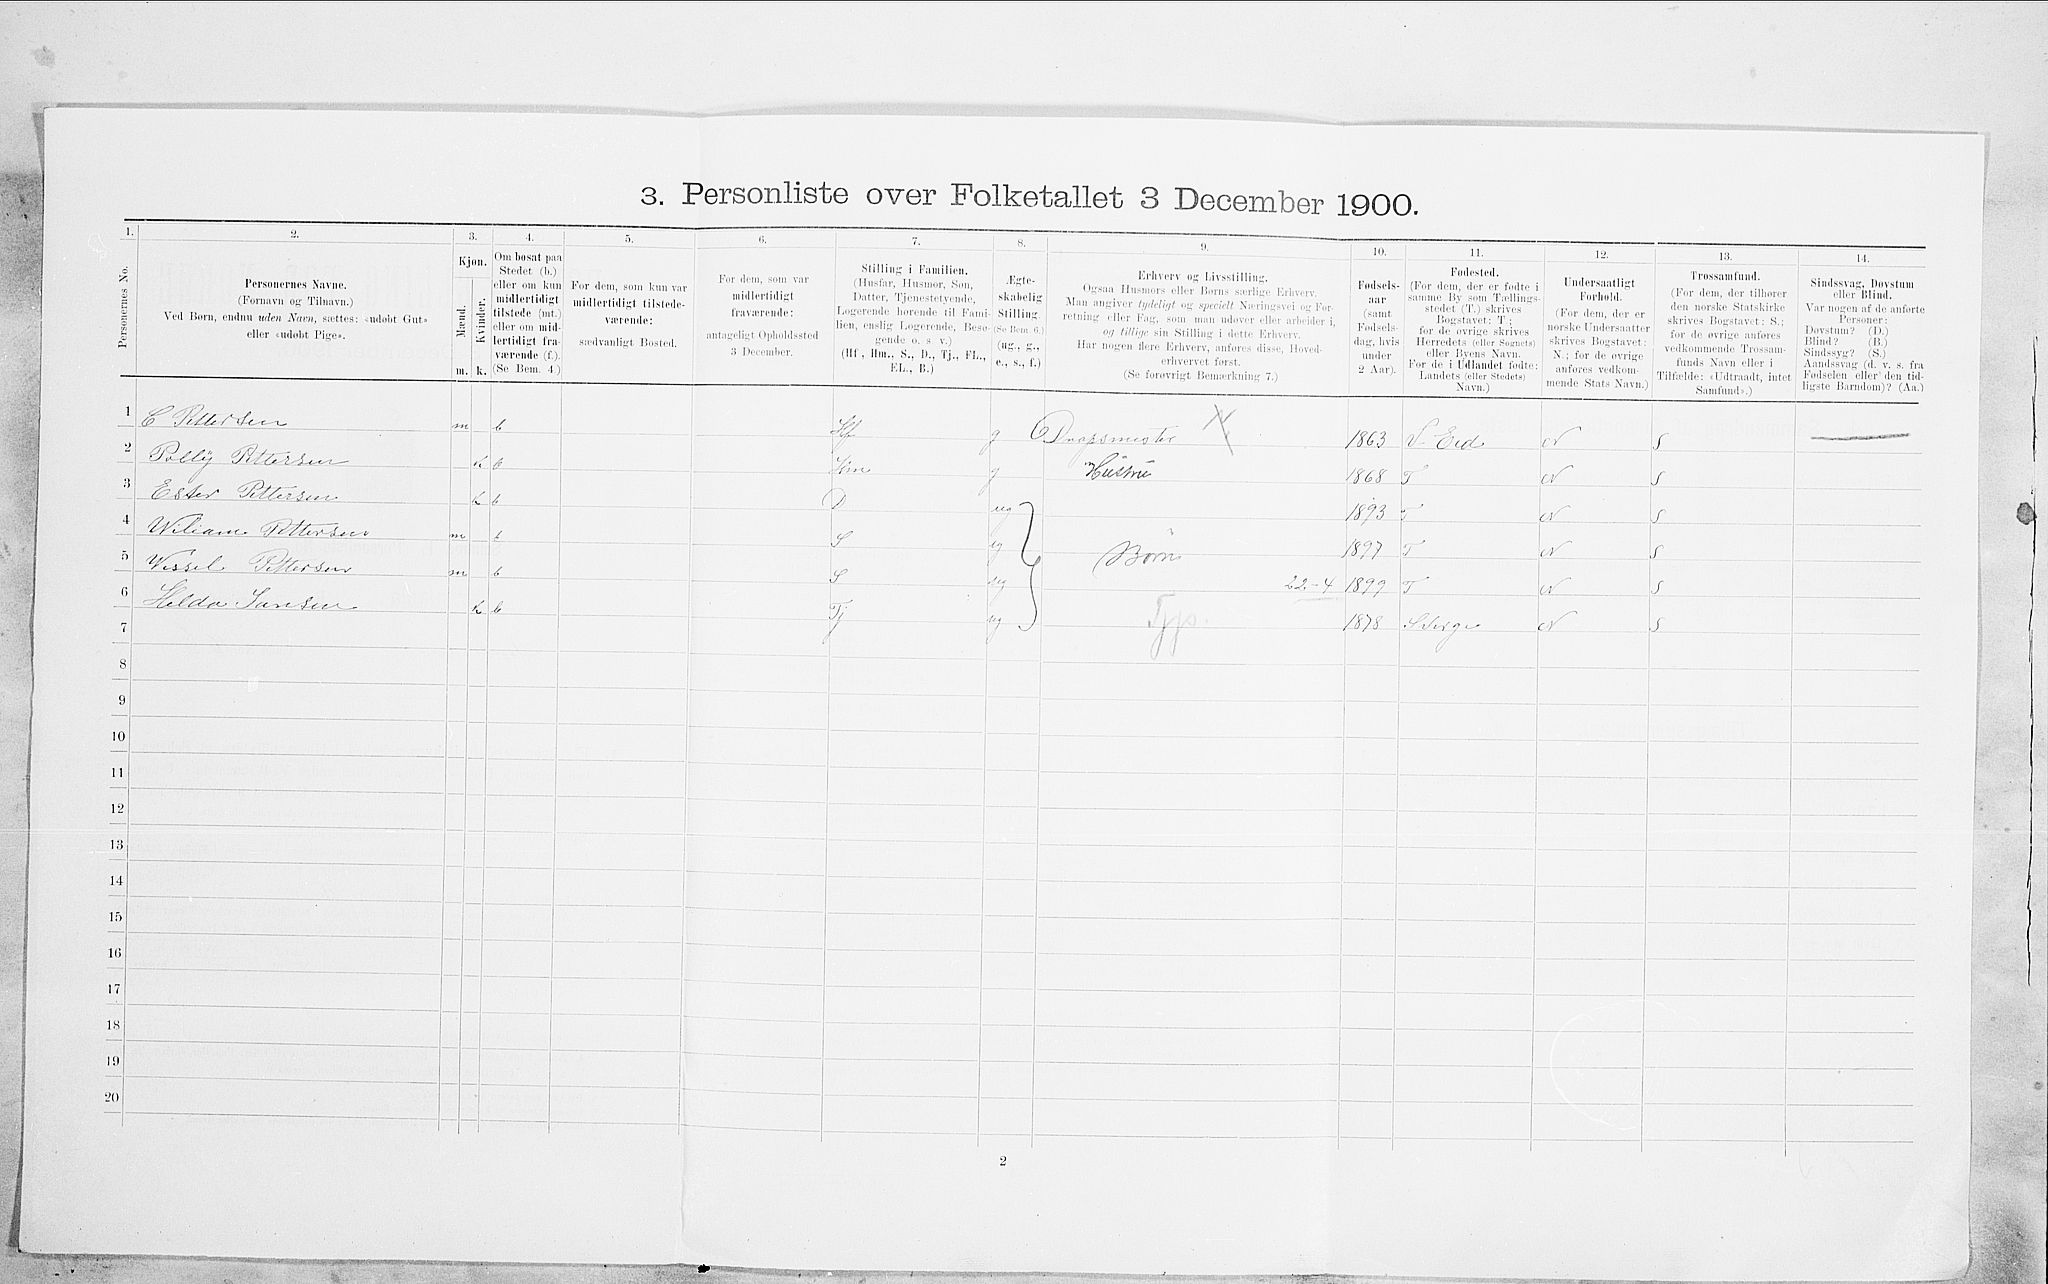 3. Personliste over Folketallet 3 December 1900.
1. 2. 3. 4. 5. 6. 7. 8. 9. 10. 11. 12. 13. 14.
Personernes No.
Personernes Navne.
(Fornavn og Tilnavn.)
Ved Børn, endnu uden Navn, sættes: «udøbt Gut»
eller «udøbt Pige».
Kjøn.
Mænd.
Kvinder.
m. k.
Om bosat paa
Stedet (b.)
eller om kun
midlertidigt
tilstede (mt.)
eller om mid-
lertidigt fra-
værende (f.).
(Se Bem. 4.)
For dem, som kun var
midlertidigt tilstede-
værende:
sædvanligt Bosted.
For dem, som var
midlertidigt
fraværende:
antageligt Opholdssted
3 December.
Stilling i Familien.
(Husfar, Husmor, Søn,
Datter, Tjenestetyende,
Logerende hørende til Fami-
lien, enslig Logerende, Besø-
gende o. s. v.)
(Hf., Hm., S., D., Tj., FL.,
EL., B.)
Ægte-
skabelig
Stilling.
(Se Bem. 6.)
(ug., g.,
e., s., f.)
Erhverv og Livsstilling.
Ogsaa Husmors eller Børns særlige Erhverv.
Man angiver tydeligt og specielt Næringsvei og For-
retning eller Fag, som man udøver eller arbeider i,
og tillige sin Stilling i dette Erhverv.
Har nogen flere Erhverv, anføres disse, Hoved-
erhvervet først.
(Se forøvrigt Bemærkning 7.)
Fødsels-
aar
(samt
Fødsels-
dag, hvis
under
2 Aar).
Fødested.
(For dem, der er fødte i
samme By som Tællings-
stedet (T.) skrives
Bogstavet: T;
for de øvrige skrives
Herredets (eller Sognets)
eller Byens Navn.
For de i Udlandet fødte:
Landets (eller Stedets)
Navn.)
Undersaatligt
Forhold.
(For dem, der er
norske Undersaatter
skrives Bogstavet:
N.; for de øvrige
anføres vedkom-
mende Stats Navn.)
Trossamfund.
(For dem, der tilhører
den norske Statskirke
skrives Bogstavet: S.;
for de øvrige anføres
vedkommende Trossam-
funds Navn eller i
Tilfælde: «Udtraadt, intet
Samfund».)
Sindssvag, Døvstum
eller Blind.
Var nogen af de anførte
Personer:
Døvstum? (D.)
Blind? (B.)
Sindssyg? (S.)
Aandssvag (d. v. s. fra
Fødselen eller den tid-
ligste Barndom)? (Aa.)
1 C Pettersen m b Hf g 1863 Eid N S
2 Polly Pettersen k b Hm g Hustru 1868 T N S
3 Ester Pettersen k b D ug 1893 T N S
4 Wiliam Pettersen m b S ug Børn 1897 T N S
5 Wessel Pettersen m b S ug 22-4 1899 T N S
6 Helda Jansen k b Tj ug Tjp. 1878 N S
7
8
9
10
11
12
13
14
15
16
17
18
19
20
2